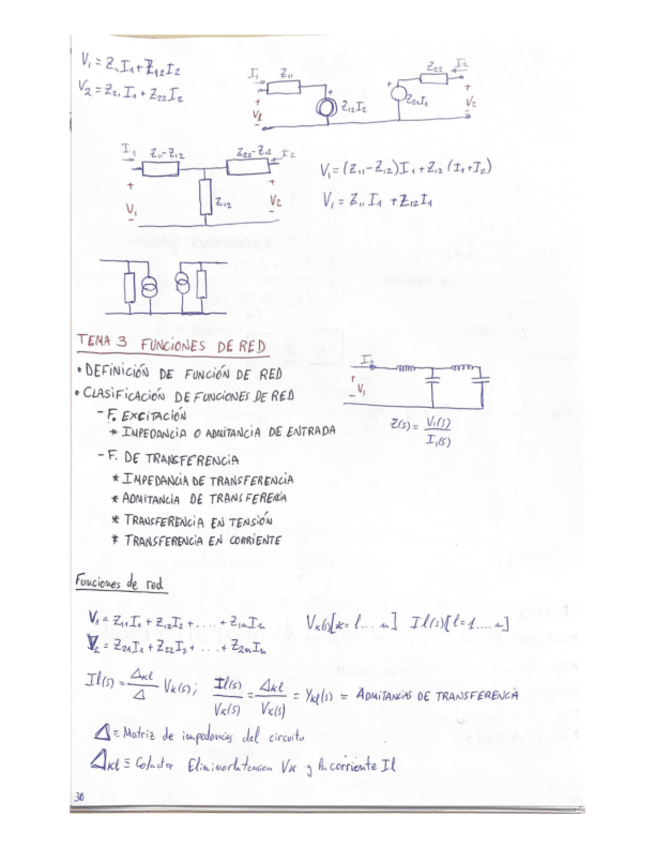 V₁ = Z₁₁I₁ + Z₁₂I₂
V₂ = Z₂₁I₁ + Z₂₂I₂
I₁ Z₁₁ Z₂₂ I₂
+ + + +
V₁ Z₁₂I₂ Z₂₁I₁ V₂
- -
I₁ Z₁₁-Z₁₂ Z₂₂-Z₁₂ I₂
+ +
V₁ Z₁₂ V₂
- -
V₁ = (Z₁₁-Z₁₂)I₁ + Z₁₂(I₁+I₂)
V₁ = Z₁₁I₁ + Z₁₂I₁
TEMA 3 FUNCIONES DE RED
• DEFINICIÓN DE FUNCIÓN DE RED
• CLASIFICACIÓN DE FUNCIONES DE RED
- F. EXCITACIÓN
* IMPEDANCIA O ADMITANCIA DE ENTRADA
- F. DE TRANSFERENCIA
* IMPEDANCIA DE TRANSFERENCIA
* ADMITANCIA DE TRANSFERENCIA
* TRANSFERENCIA EN TENSIÓN
* TRANSFERENCIA EN CORRIENTE
+
V₁
-
Z(s) = V₁(s) / I₁(s)
Funciones de red
V₁ = Z₁₁I₁ + Z₁₂I₂ + .... + Z₁nIn
V₂ = Z₂₁I₁ + Z₂₂I₂ + ... + Z₂nIn
Vk(s)[k=1....n] Il(s)[l=1.....n]
Il(s) = Δkl / Δ Vk(s); Il(s) / Vk(s) = Δkl / Vk(s) = Ykl(s) = ADMITANCIAS DE TRANSFERENCIA
Δ = Matriz de impedancias del circuito
Δkl ≡ Cofactor Eliminar la tension Vk y la corriente Il
30